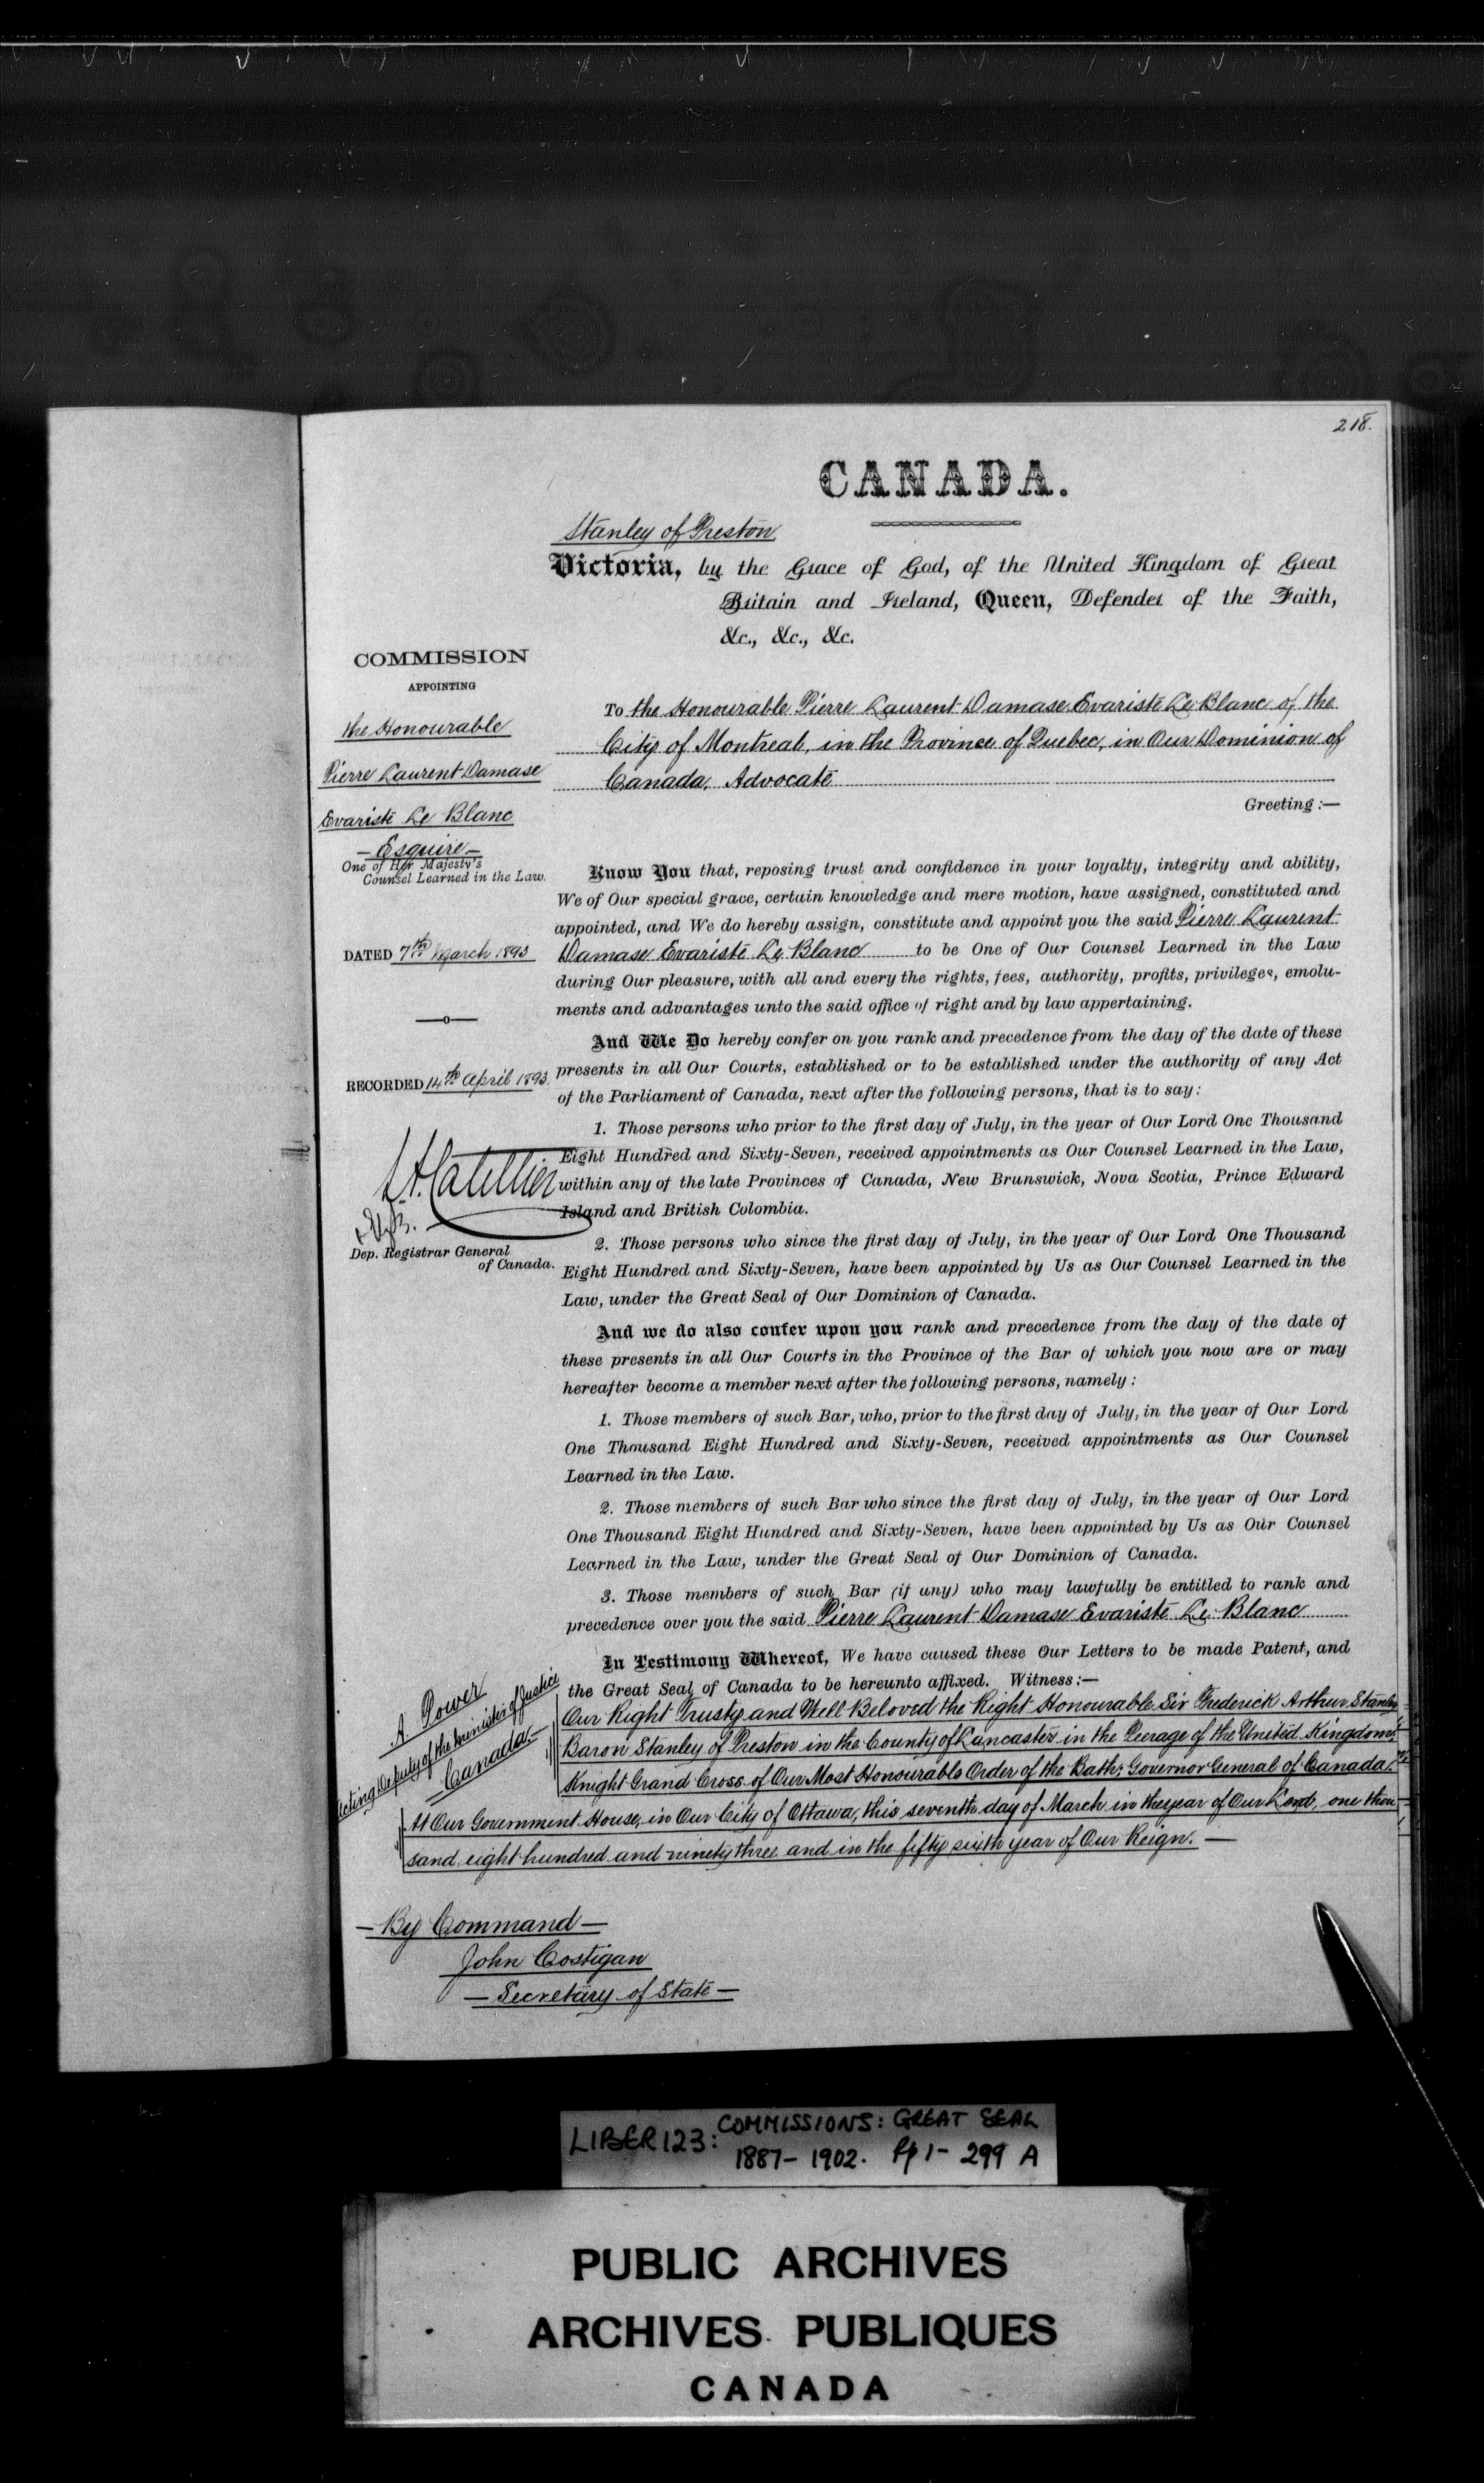 218.
CANADA.
Stanley of Preston
Victoria, by the Grace of God, of the United Kingdom of Great
Britain and Ireland, Queen, Defender of the Faith,
&c., &c., &c.
COMMISSION
APPOINTING
the Honourable
Pierre Laurent Damase
Evariste Le Blanc
— Esquire —
One of Her Majesty's
Counsel Learned in the Law.
DATED 7th March 1893
RECORDED 14th April 1893.
L.A. Catellier
Dep. Registrar General
of Canada.
To the Honourable Pierre Laurent Damase Evariste Le Blanc of the
City of Montreal, in the Province of Quebec, in Our Dominion of
Canada, Advocate
Greeting :—
Know You that, reposing trust and confidence in your loyalty, integrity and ability,
We of Our special grace, certain knowledge and mere motion, have assigned, constituted and
appointed, and We do hereby assign, constitute and appoint you the said Pierre Laurent
Damase Evariste Le Blanc to be One of Our Counsel Learned in the Law
during Our pleasure, with all and every the rights, fees, authority, profits, privileges, emolu-
ments and advantages unto the said office of right and by law appertaining.
And We Do hereby confer on you rank and precedence from the day of the date of these
presents in all Our Courts, established or to be established under the authority of any Act
of the Parliament of Canada, next after the following persons, that is to say:
1. Those persons who prior to the first day of July, in the year of Our Lord One Thousand
Eight Hundred and Sixty-Seven, received appointments as Our Counsel Learned in the Law,
within any of the late Provinces of Canada, New Brunswick, Nova Scotia, Prince Edward
Island and British Colombia.
2. Those persons who since the first day of July, in the year of Our Lord One Thousand
Eight Hundred and Sixty-Seven, have been appointed by Us as Our Counsel Learned in the
Law, under the Great Seal of Our Dominion of Canada.
And we do also confer upon you rank and precedence from the day of the date of
these presents in all Our Courts in the Province of the Bar of which you now are or may
hereafter become a member next after the following persons, namely:
1. Those members of such Bar, who, prior to the first day of July, in the year of Our Lord
One Thousand Eight Hundred and Sixty-Seven, received appointments as Our Counsel
Learned in the Law.
2. Those members of such Bar who since the first day of July, in the year of Our Lord
One Thousand Eight Hundred and Sixty-Seven, have been appointed by Us as Our Counsel
Learned in the Law, under the Great Seal of Our Dominion of Canada.
3. Those members of such Bar (if any) who may lawfully be entitled to rank and
precedence over you the said Pierre Laurent Damase Evariste Le Blanc
In Testimony Whereof, We have caused these Our Letters to be made Patent, and
the Great Seal of Canada to be hereunto affixed. Witness:—
A. Power
Acting Deputy of the Minister of Justice
Canada —
Our Right Trusty and Well Beloved the Right Honourable Sir Frederick Arthur Stanley
Baron Stanley of Preston in the County of Lancaster in the Peerage of the United Kingdom,
Knight Grand Cross of Our Most Honourable Order of the Bath, Governor General of Canada.
At Our Government House, in Our City of Ottawa, this seventh day of March in the year of Our Lord, one thou
sand eight hundred and ninety three and in the fifty sixth year of Our Reign. —
— By Command —
John Costigan
— Secretary of State —
LIBER 123: COMMISSIONS: GREAT SEAL
1887 - 1902. Pp 1 - 299 A
PUBLIC ARCHIVES
ARCHIVES PUBLIQUES
CANADA